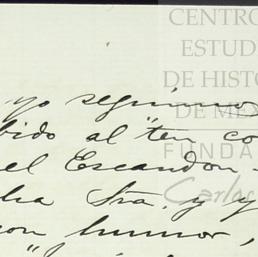 CENTRO
ESTUD
DE HISTO
DE ME
FUNDA
Carlos
yo seguimos
bido al "ten co
el Escandon-
cha Sra. y y
con humor,